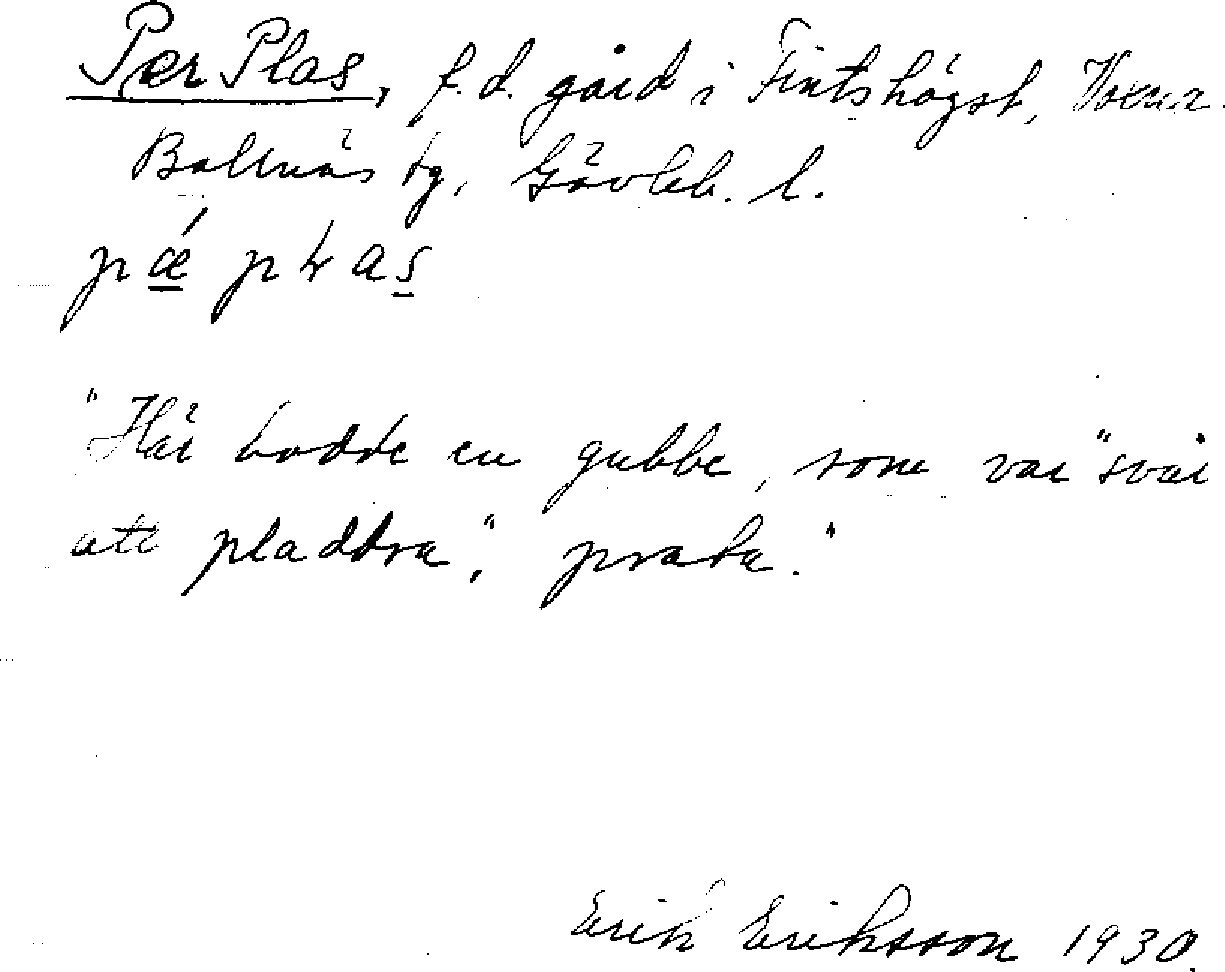 Per Plas, f.d. gård i Fintshögst, Voxna.
Bollnäs tg, Gävleb. l.
pæ´ pɫas
"Här bodde en gubbe, som var "svår
att pladdra", prata."
Erik Eriksson 1930.